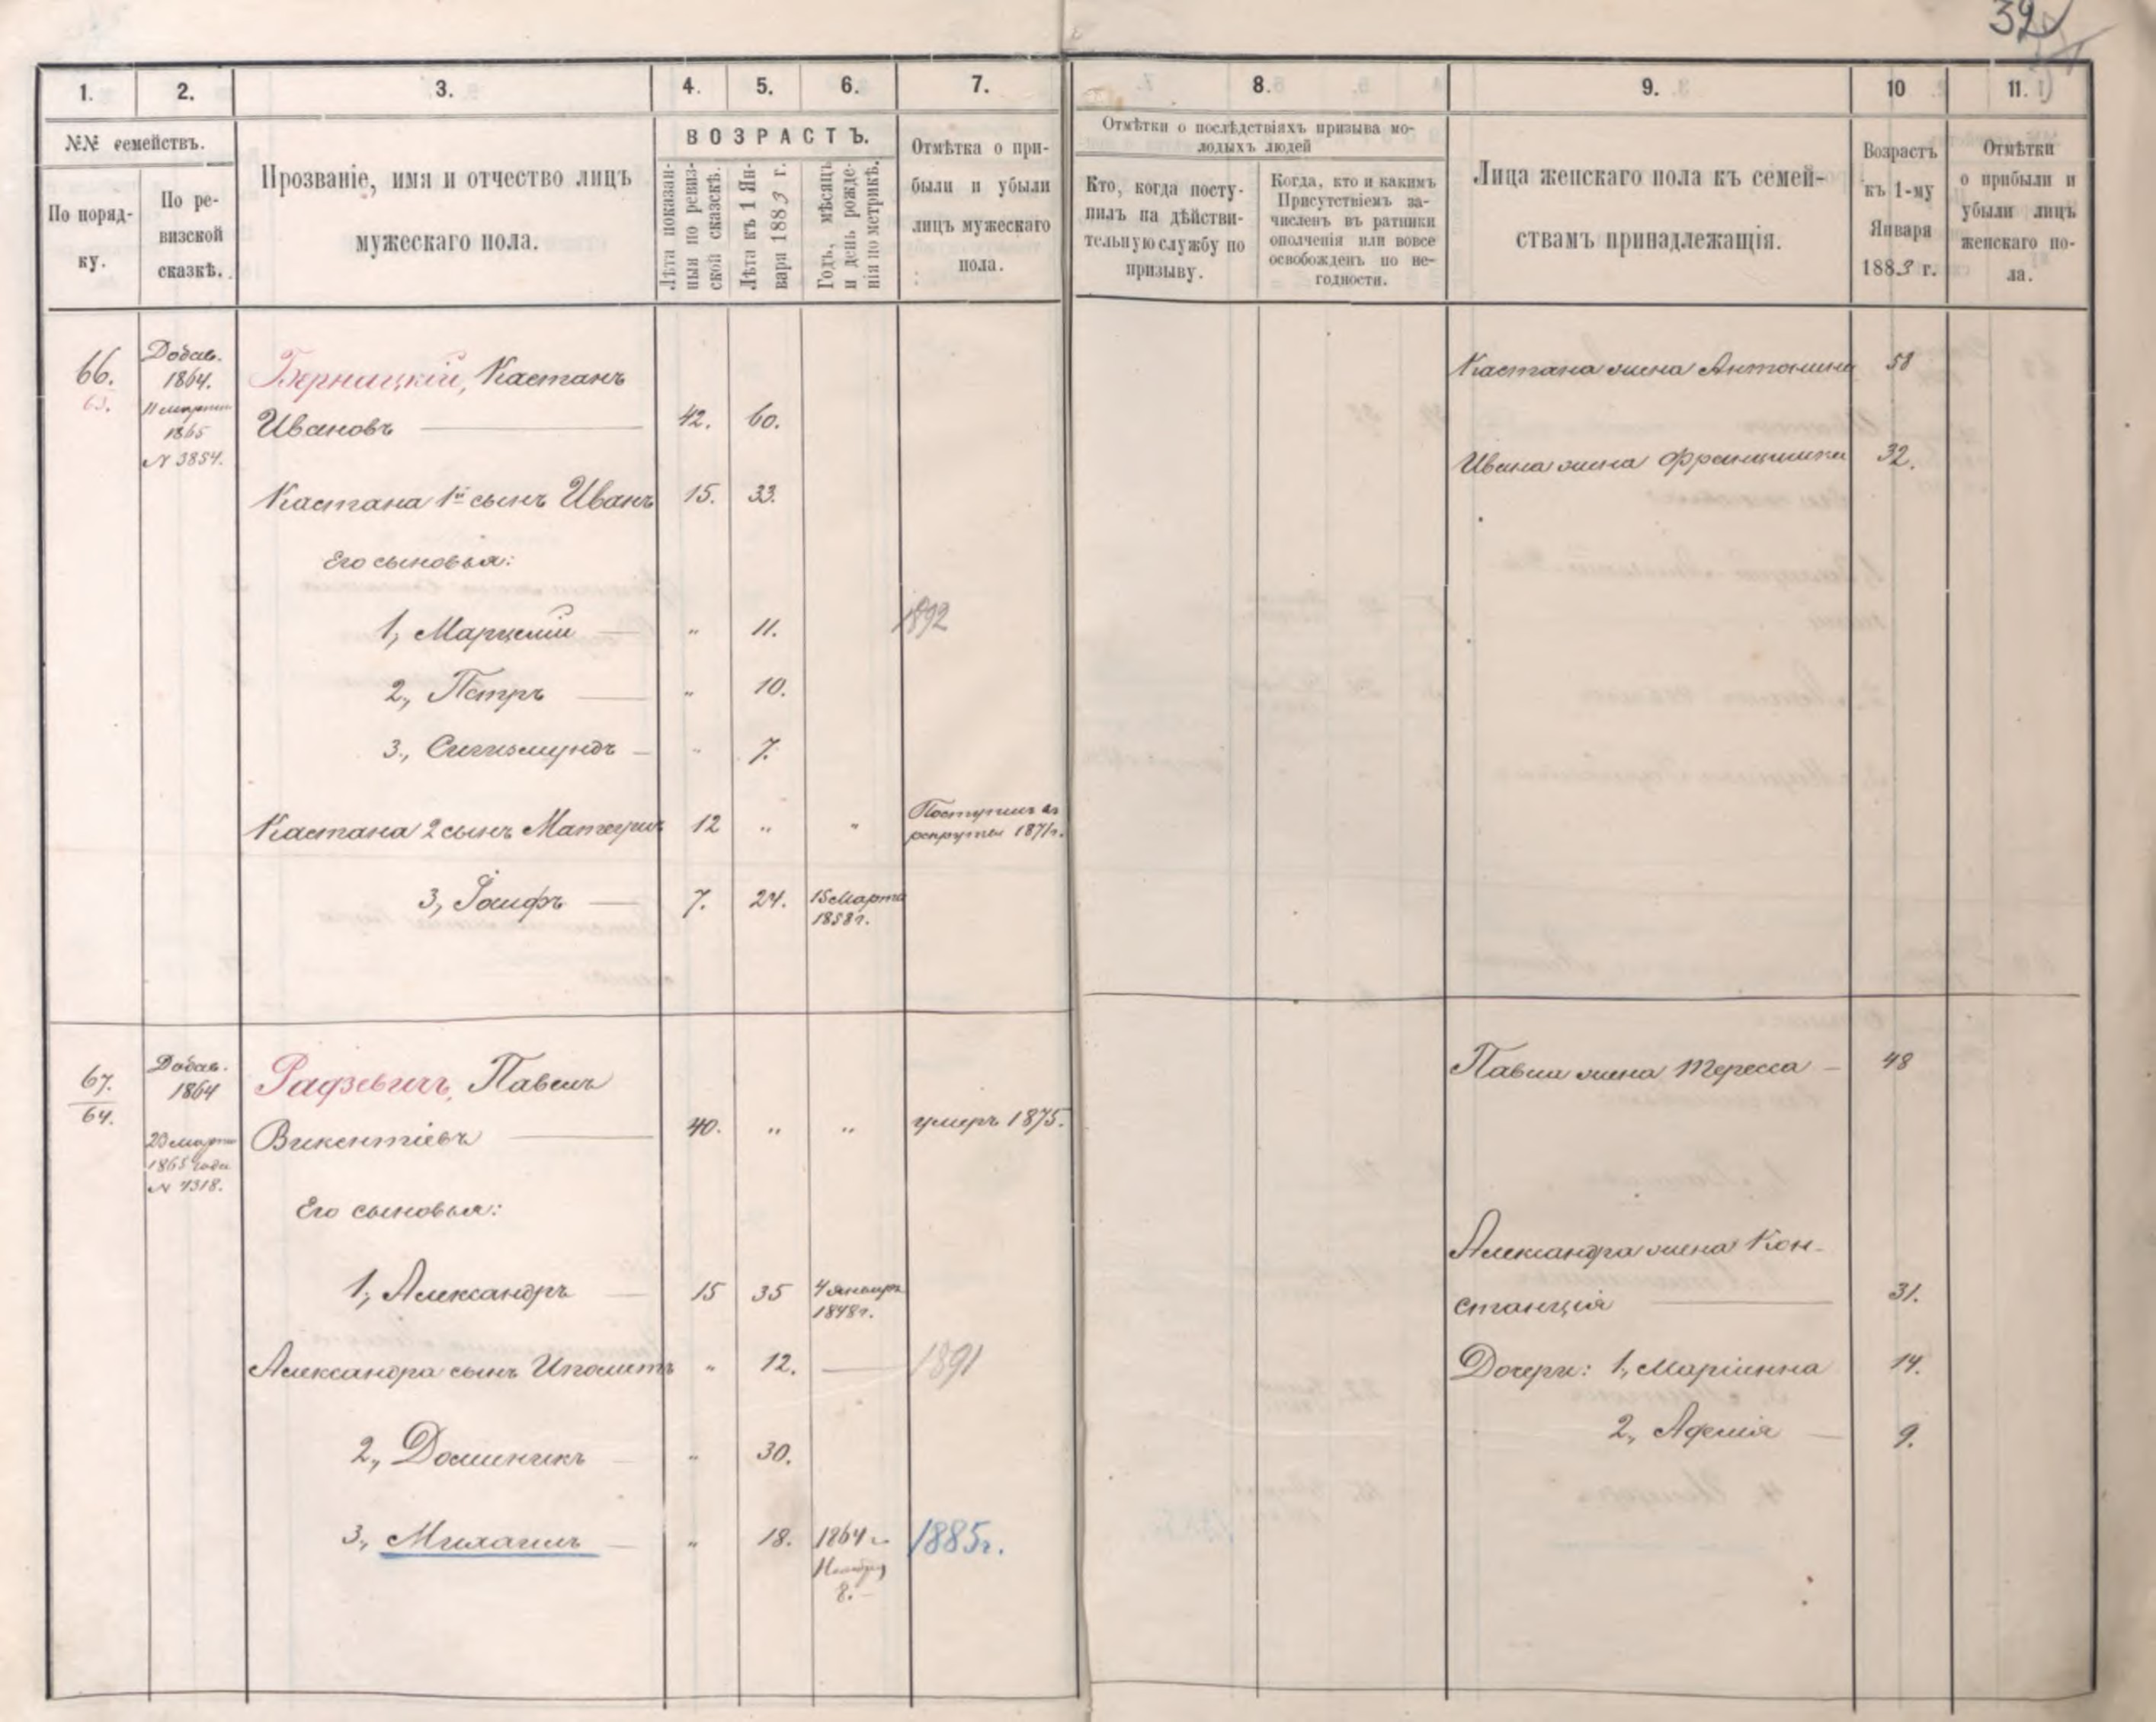 39
1.
2.
3.
4.
5.
6.
7.
8.
9.
10
11.
№№ семействъ.
По поряд-
ку.
По ре-
визской
сказкѣ.
Прозваніе, имя и отчество лицъ
мужескаго пола.
ВОЗРАСТЪ.
Лѣта показан-
ныя по ревиз-
ской сказскѣ.
Лѣта къ 1 Ян-
варя 1883 г.
Годъ, мѣсяцъ
и день рожде-
нія по метрикѣ.
Отмѣтка о при-
были и убыли
лицъ мужескаго
пола.
Отмѣтки о послѣдствіяхъ призыва мо-
лодыхъ людей
Кто, когда посту-
пилъ на дѣйстви-
тельную службу по
призыву.
Когда, кто и какимъ
Присутствіемъ за-
численъ въ ратники
ополченія или вовсе
освобожденъ по не-
годности.
Лица женскаго пола къ семей-
ствамъ принадлежащія.
Возрастъ
къ 1-му
Января
1883 г.
Отмѣтки
о прибыли и
убыли лицъ
женскаго по-
ла.
66.
63.
Добав.
1864.
11 марта
1865
N 3854.
Берницкій, Каетанъ
Ивановъ 42. 60.
Каетана 1й сынъ Иванъ 15. 33.
Его сыновья:
1, Марцелій " 11. 1892
2, Петръ " 10.
3, Сигизмундъ " 7.
Каетана 2 сынъ 12 " " Поступилъ въ
рекруты 1871г.
3, Іосифъ 7. 24. 15 Марта
1858г.
Каетана жена Антонина 58
Ивана жена Францишка 32.
67.
64.
Добав.
1864
23 марта
1865 года
N 4318.
Радзевичъ, Павелъ
Викентіевъ 40. " " умеръ 1875.
Его сыновья:
1, Александръ 15 35 4 января
1848г.
Александра сынъ Иполитъ " 12. 1891
2, Доминикъ " 30.
3, Михаилъ " 18. 1864 г. 1885г.
Ноября
8.
Павла жена Тересса 48
Александра жена Кон-
станція 31.
Дочери: 1, Маріанна 14.
2, Аделія 9.